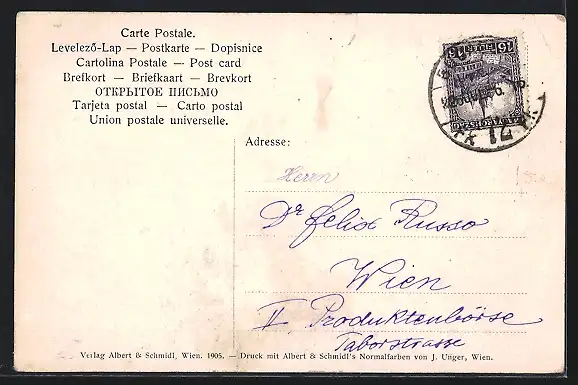 Carte Postale.
Levelező-Lap — Postkarte — Dopisnice
Cartolina Postale — Post card
Brefkort — Briefkaart — Brevkort
ОТКРЫТОЕ ПИСЬМО
Tarjeta postal — Carto postal
Union postale universelle.
Adresse:
Herrn
Dr Felix Russo
Wien
II Produktenbörse
Taborstrasse
Verlag Albert & Schmidl, Wien. 1905. — Druck mit Albert & Schmidl's Normalfarben von J. Unger, Wien.